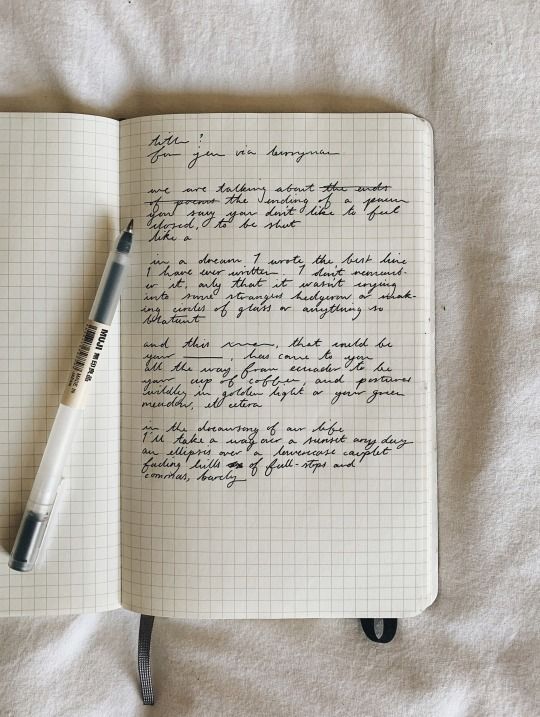 title?
for jen via berryman
we are talking about the ends
of poems the ending of a poem
you say you don't like to feel
closed, to be shut
like a
in a dream I wrote the best line
I have ever written. I don't rememb-
er it, only that it wasn't crying
into some strangers hedgerow or mak-
ing circles of glass or anything so
blatant
and this, that could be
your ____, has come to you
all the way from ecuador to be
your cup of coffee, and postures
wildly in golden light or your green
meadow, et cetera
in the dreamsong of our life
I'll take a wave over a sunset any day
an ellipses over a lowercase couplet
fading hills of full-stops and
commas, barely
MUJI 無印良品